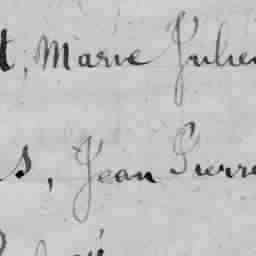 t, Marie Julie
s, Jean Pierre